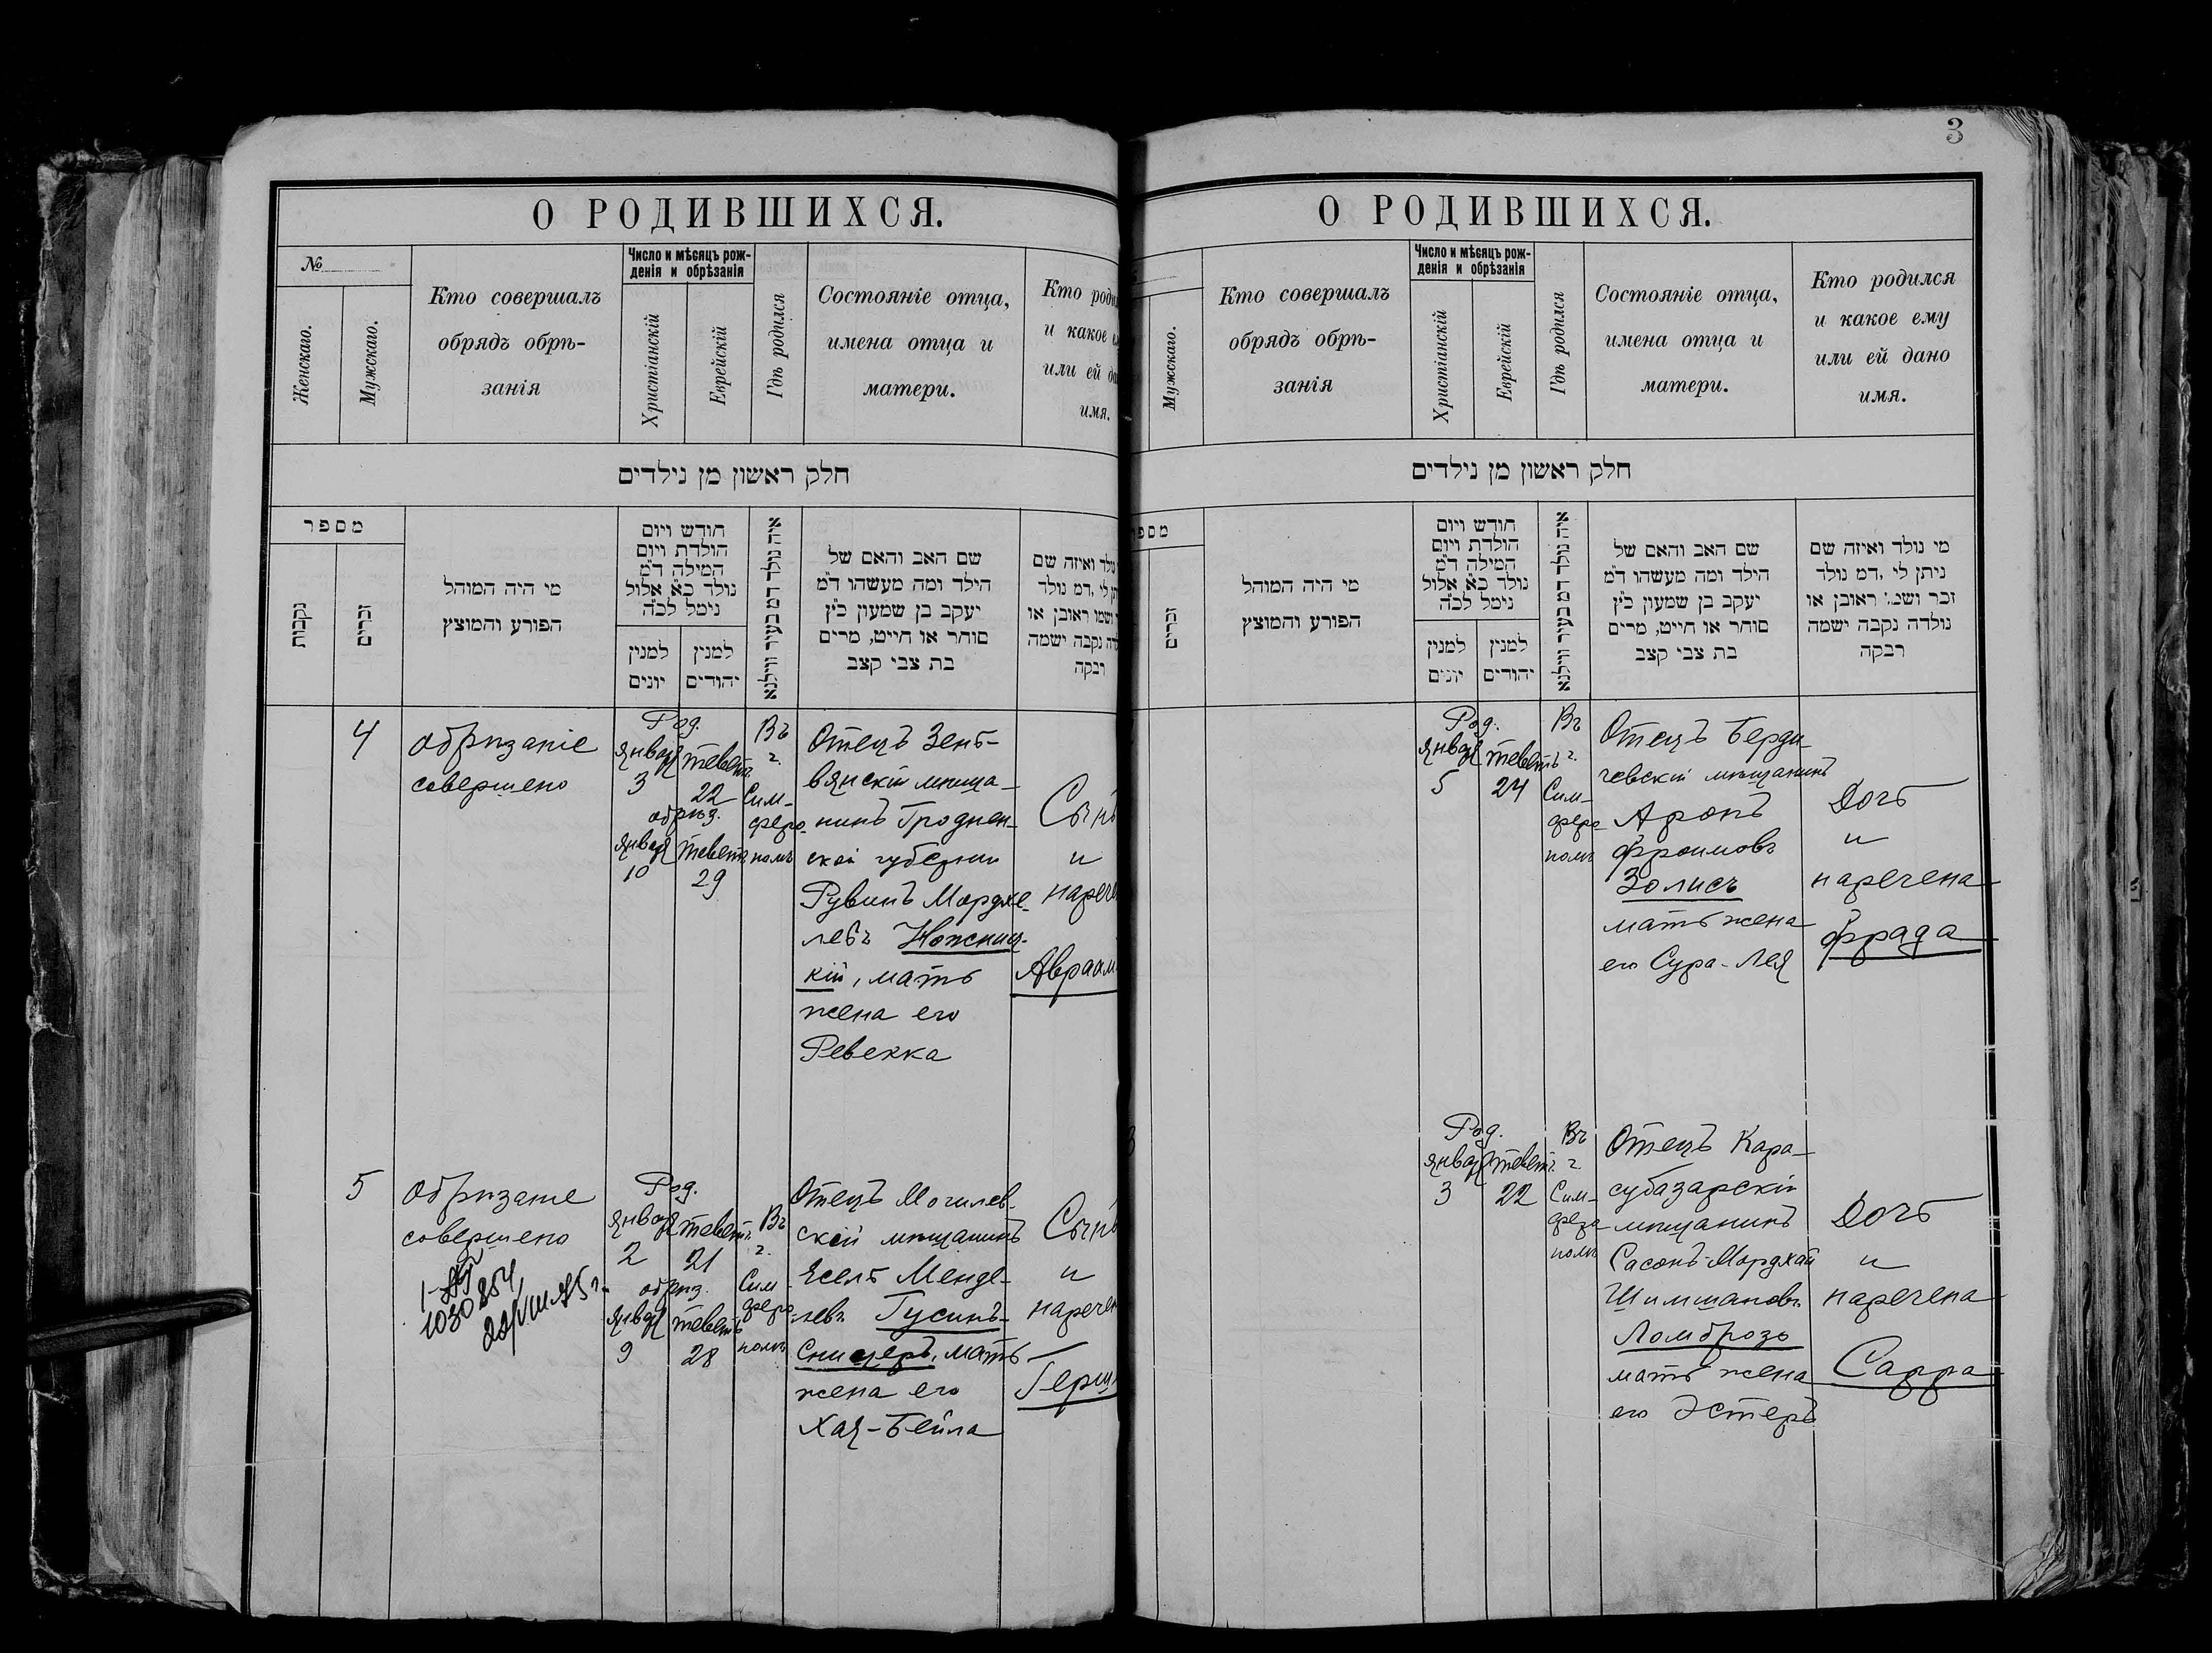 3
О РОДИВШИХСЯ.
№
Женскаго.
Мужскаго.
Кто совершалъ
обрядъ обрѣ-
занія
Число и мѣсяцъ рож-
денія и обрѣзанія
Христіанскій
Еврейскій
Гдѣ родился
Состояніе отца,
имена отца и
матери.
Кто роди
и какое
или ей да
имя.
חלק ראשון מן נילדים
מספר
נקבות
זכרים
מי היה המוהל
הפורע והמוצץ
חודש ויום
הולדת ויום
המילה ד"מ
נולד כ"א אלול
נימל לכ"ה
למנין
יונים
למנין
יהודים
איה נולד דמ בעיר ווילנא
שם האב והאם של
הילד ומה מעשהו ד"מ
יעקב בן שמעון כ"ץ
סוחר או חייט, מרים
בת צבי קצב
נולד ואיזה שם
תן לי, דמ נולד
ושמו ראובן או
דה נקבה ישמה
רבקה
4
обрѣзаніе
совершено
Род.
Январ
3
Тевет.
22
обрѣз.
Январ
10
Тевет.
29
Въ
г.
Сим-
феро-
полѣ
Отецъ Зель-
вянскій мѣща-
нинъ Гроднен-
ской губерніи
Рувинъ Мордхе-
левъ Ножниц-
кій, мать
жена его
Ревекка
Сынъ
и
нарече
Авраам
5
Обрѣзаніе
совершено
1030254
Род.
Январ
2
Тевет.
21
обрѣз.
Январ
9
Тевет
28
Въ
г.
Сим-
феро-
полѣ
Отецъ Могилев-
скій мѣщанинъ
Есель Менде-
левъ Гусинъ-
Сницеръ, мать
жена его
Хая-Бейла
Сынъ
и
наречен
Герш
О РОДИВШИХСЯ.
Мужскаго.
Кто совершалъ
обрядъ обрѣ-
занія
Число и мѣсяцъ рож-
денія и обрѣзанія
Христіанскій
Еврейскій
Гдѣ родился
Состояніе отца,
имена отца и
матери.
Кто родился
и какое ему
или ей дано
имя.
חלק ראשון מן נילדים
מספ
זכרים
מי היה המוהל
הפורע והמוצץ
חודש ויום
הולדת ויום
המילה ד"מ
נולד כ"א אלול
נימל לכ"ה
למנין
יונים
למנין
יהודים
איה נולד דמ בעיר ווילנא
שם האב והאם של
הילד ומה מעשהו ד"מ
יעקב בן שמעון כ"ץ
סוחר או חייט, מרים
בת צבי קצב
מי נולד ואיזה שם
ניתן לי, דמ נולד
זכר ושמו ראובן או
נולדה נקבה ישמה
רבקה
Род.
Январ
5
Теветъ
24
Въ
г.
Сим-
феро-
полѣ
Отецъ Берди-
чевскій мѣщанинъ
Аронъ
Фроимовъ
Золисъ
мать жена
его Сура-Лея
Дочь
и
наречена
Фрада
3
Род.
Январ
3
Тевет.
22
Въ
г.
Сим-
феро-
полѣ
Отецъ Кара-
субазарскій
мѣщанинъ
Сасонъ-Мордхай
Шимшановъ
Ломброзо
мать жена
его Эстеръ
Дочь
и
наречена
Сарра